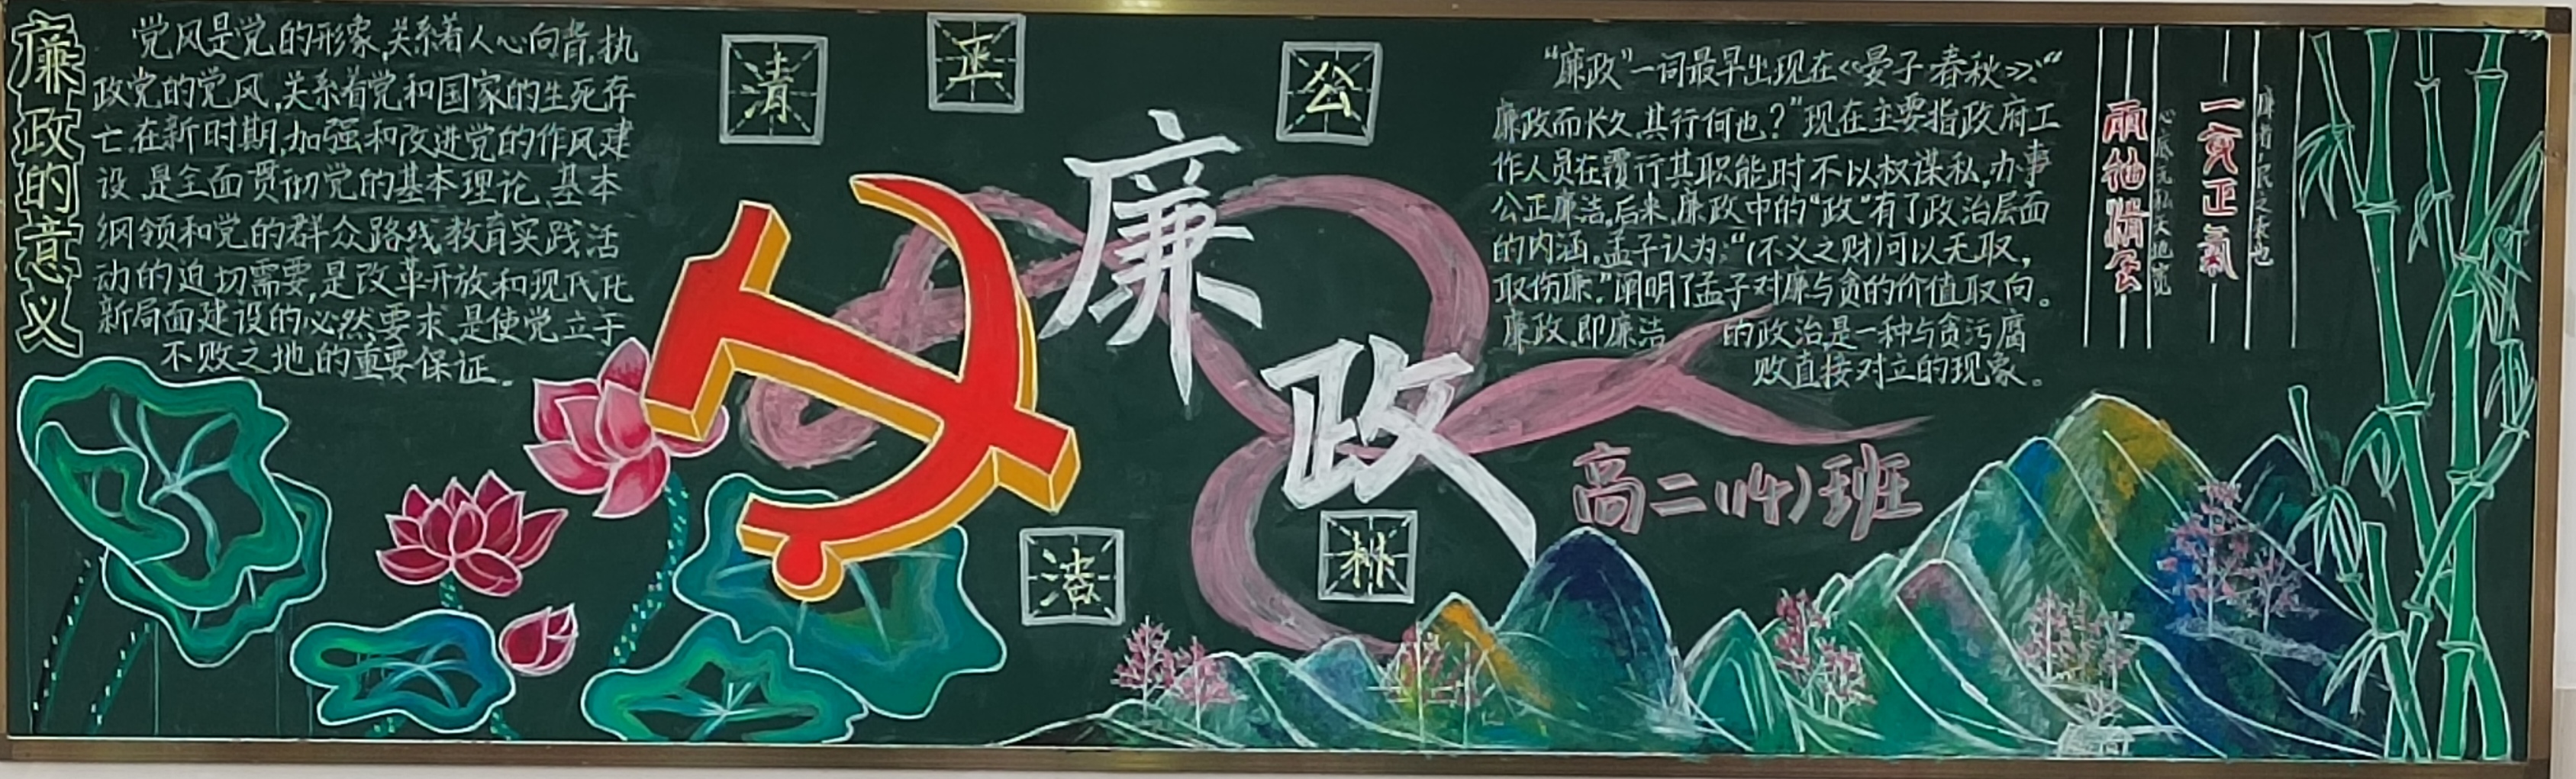 廉政的意义
党风是党的形象,关系着人心向背,执
政党的党风,关系着党和国家的生死存
亡.在新时期,加强和改进党的作风建
设,是全面贯彻党的基本理论、基本
纲领和党的群众路线教育实践活
动的迫切需要,是改革开放和现代化
新局面建设的必然要求,是使党立于
不败之地的重要保证。
清
正
公
廉
政
洁
林
“廉政”一词最早出现在《晏子·春秋》:“
廉政而长久,其行何也?”现在主要指政府工
作人员在覆行其职能时不以权谋私,办事
公正廉洁,后来,廉政中的“政”有了政治层面
的内涵。孟子认为:“(不义之财)可以无取,
取伤廉。”阐明了孟子对廉与贪的价值取向。
廉政,即廉洁 的政治是一种与贪污腐
败直接对立的现象。
高二(14)班
廉者,民之表也
一 正氣
心底无私天地宽
兩袖